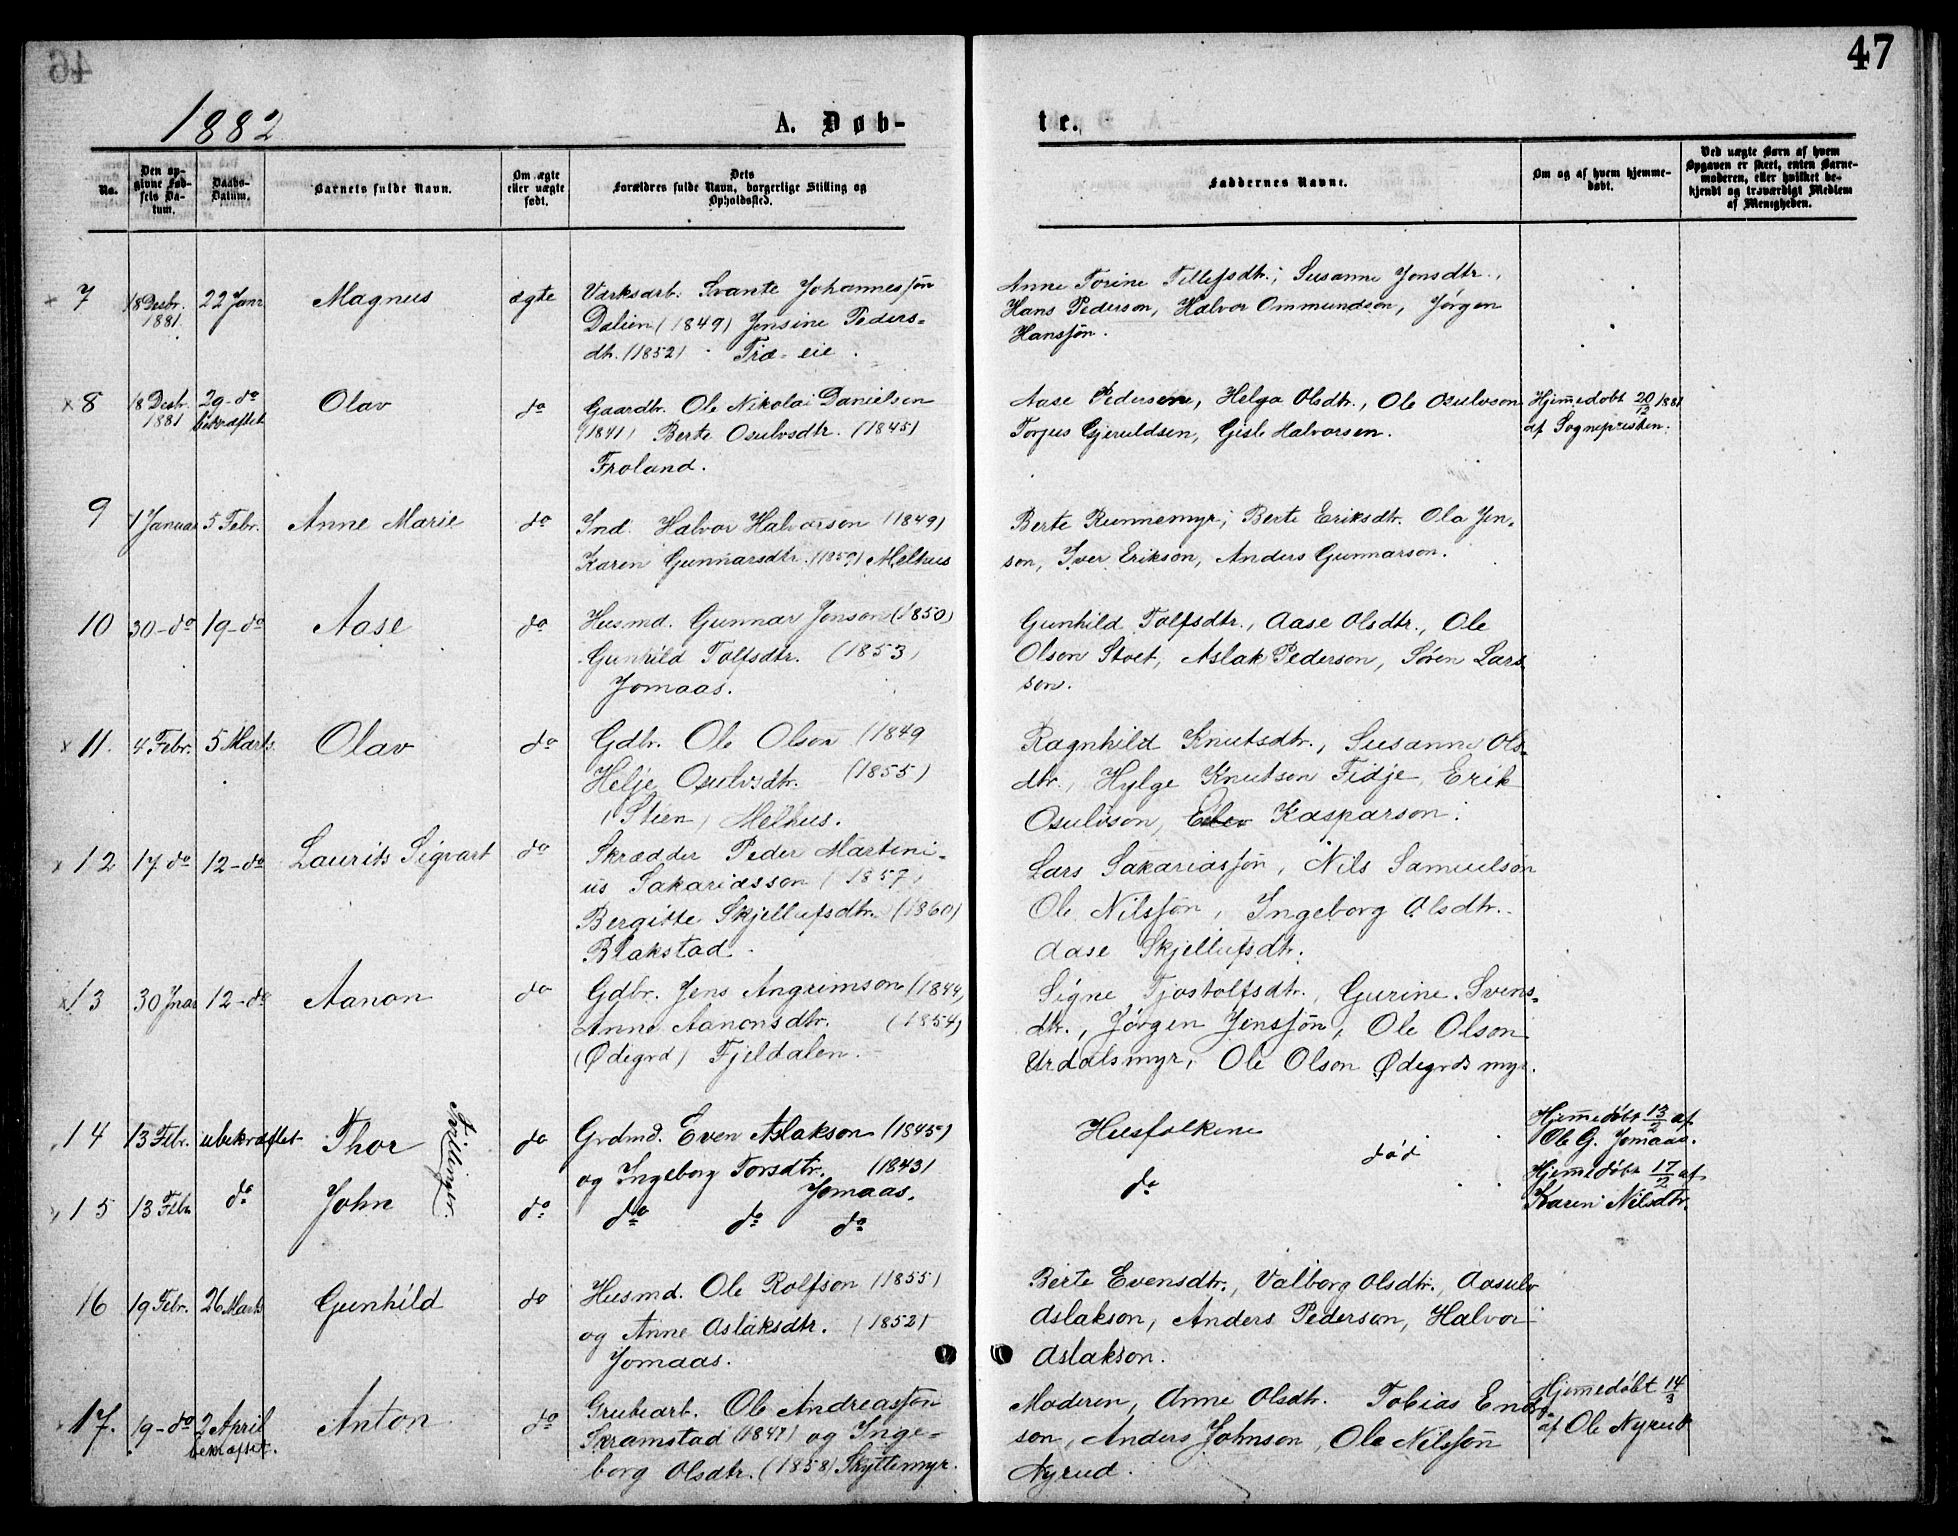 46
47
1882
A. Døb-
te.
No.
Den op-
givne Fød-
sels Da-
tum.
Daabs-
Datum.
Barnets fulde Navn.
Om ægte
eller uægte
født.
Dets
Forældres fulde Navn, borgerlige Stilling og
Opholdssted.
Faddernes Navne.
Om og af hvem hjemme-
døbt.
Ved uægte Børn af hvem
Opgaven er skeet, enten Barne-
moderen, eller hvilket be-
kjendt og troværdigt Medlem
af Menigheden.
× 7 18 Desbr. 1881 22 Janr Magnus ægte
Værksarb. Svante Johannesson
Dalien (1849) Jensine Peders-
dtr. (1852) Træ-eie.
Anne Torine Tellefsdtr., Susanne Jonsdtr.,
Hans Pederson, Halvor Ommundson, Jørgen
Hansson.
× 8 18 Desbr. 1881 29-do bekræftet Olav do
Gaardbr. Ole Nikolai Danielsen
(1841) Berte Osulvsdtr. (1845)
Froland.
Aase Pedersen, Helga Olsdtr., Ole Osulvson
Torjus Gjeruldsen, Gisle Halvorsen.
Hjemmedøbt 20/12 1881
af Sognepresten.
9 1 Januar 5 Febr. Anne Marie do
Ind. Halvor Halvorson (1849)
Karen Gunnarsdtr. Melhus
Berte Runnemyr, Berte Eriksdtr. Ola Jen-
son, Iver Erikson, Anders Gunnarson.
10 30-do 19-do Aase do
Husmd. Gunnar Jonson (1850)
Gunhild Tolfsdtr. (1853)
Jomaas.
Gunhild Tolfsdtr., Aase Olsdtr., Ole
Olson Stoet, Aslak Pederson, Søren Lars-
son.
× 11. 4 Febr. 5 Marts Olav do
Gdbr. Ole Olson (1849
Helje Osulvsdtr. (1855)
(Stien) Melhus.
Ragnhild Knutsdtr., Susanne Ols-
dtr., Hylge Knutson Fidje, Erik
Osulvson, Kasparson.
× 12 17 do 12-do Laurits Sigvart do
Skrædder Peder Martini-
us Sakariasson (1857)
Bergitte Skjellufsdtr. (1860)
Blakstad.
Lars Sakariasson, Nils Samuelson
Ole Nilsson, Ingeborg Olsdtr.
Aase Skjellufsdtr.
× 13 30 Jnar 12-do Aanon do
Gdbr. Jens Angrimson (1844)
Anne Aanonsdtr. (1854)
(Ødegrd) Fjeldalen.
Signe Tjostolfsdtr., Gurine Svens-
dtr., Jørgen Jensson, Ole Olson
Urdalsmyr, Ole Olson Ødegrdsmyr.
14 13 Febr. ubekræftet Thor Tvillinger. do
Grdmd. Even Aslakson (1845)
og Ingeborg Torsdtr. (1843)
Jomaas.
Husfolkene
død
Hjemmedøbt 13/2 af
Ole G. Jomaas.
15 13 Febr do John do
do do do
do
Hjemmedøbt 17/2 af
Karen Nilsdtr.
16 19 Febr. 26 Marts Gunhild do
Husmd. Ole Rolfson (1855)
og Anne Aslaksdtr. (1852)
Jomaas.
Berte Evensdtr., Valborg Olsdtr., Aasulv
Aslakson, Anders Pederson, Halvor
Aslakson.
17. 19-do 2 April bekræftet. Anton do
Grubearb. Ole Andreasson
Skramstad og Inge-
borg Olsdtr. (1858) Skyttemyr.
Moderen, Anne Olsdtr. Tobias
son, Anders Johnson, Ole Nilsson
Nyrud.
Hjemmedøbt 14/3
af Ole Nyrud